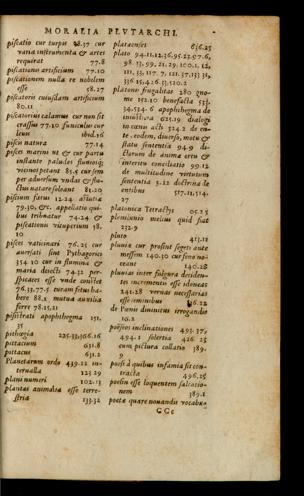 MORALIA PLVTARCHI.
piscatio cur turpis 98.37 cur
varia instrumenta & artes
requirat 77.8
piscationis artificium 77.10
piscationem nulla re nobilem
esse 58.27
piscatoris cuiusdam artificium
80.11
piscatorius calamus cur non sit
crassus 77.10 funiculus cur
leuis ibid.16
piscis natura 77.14
pisces marini ut & cur partu
instante paludes fluuiosq;
vicinos petant 85.5 cur sem
per aduersum vndas & flu-
ctus natare soleant 81.20
piscium fœtus 12.24 astutiæ
79.30, &c. appellatio qui-
bus tribuatur 74.24 &
piscationis vituperium 58.
10
pisces vaticinari 76.25 cur
auersati sint Pythagorici
354.10 cur in flumina &
maria diuisi 74.32 per-
spicaces esse vnde onustet
76.33.77.5 curam fœtus ha-
bere 88.2 mutua auxilia
ferre 78.15.21
pisistrati apophthegma 151.
35
pithœgia 225.33,366.16
pittacium 631.8
pittacus 631.2
Planetarum ordo 439.22 in-
teruallis 123.29
plani numeri 102.13
plantas animalia esse terre-
stria 133.32
plataenses 636.25
plato 94.11.12.36.95.23.97.6,
98.33, 99.21.29.100.1.12,
111.33, 117.7, 121.17,153 31,
336.15,426.13,520.2
platono frugalitas 280 gno-
me 152.10 benefacta 533.
34,514.6 apophthegma de
iniustitia 625.19 dialogi
in cœnis acti 324.2 de en-
te, eodem, diuerso, motu &
statu sententia 94.9 di-
ctorum de anima ortu &
interitu conciliatio 99.12
de multitudine virtutum
sententia 5.22 doctrina de
entibus 517.11,514.
27
platonica Tetractys 05.25
pleminius melius quid fiat
232.9
pluto 413.11
pluuiæ cur prosint segeti ante
messem 140.30 cur sero no-
ceant 140.28
pluuias inter fulgura deciden-
tes incremento esse idoneas
141.28 vernas necessarias
esse seminibus 146.22
de Pœnis diminutis irrogandis
16.2
poëseos inclinationes 495.37,
494.1 solertia 426.25
cum pictura collatio 389.
9
poesi à quibus infamia sit con-
tracta 496.25
poesin esse loquentem saltatio-
nem 389.1
poetæ quare nouandis vocabu-
GGc